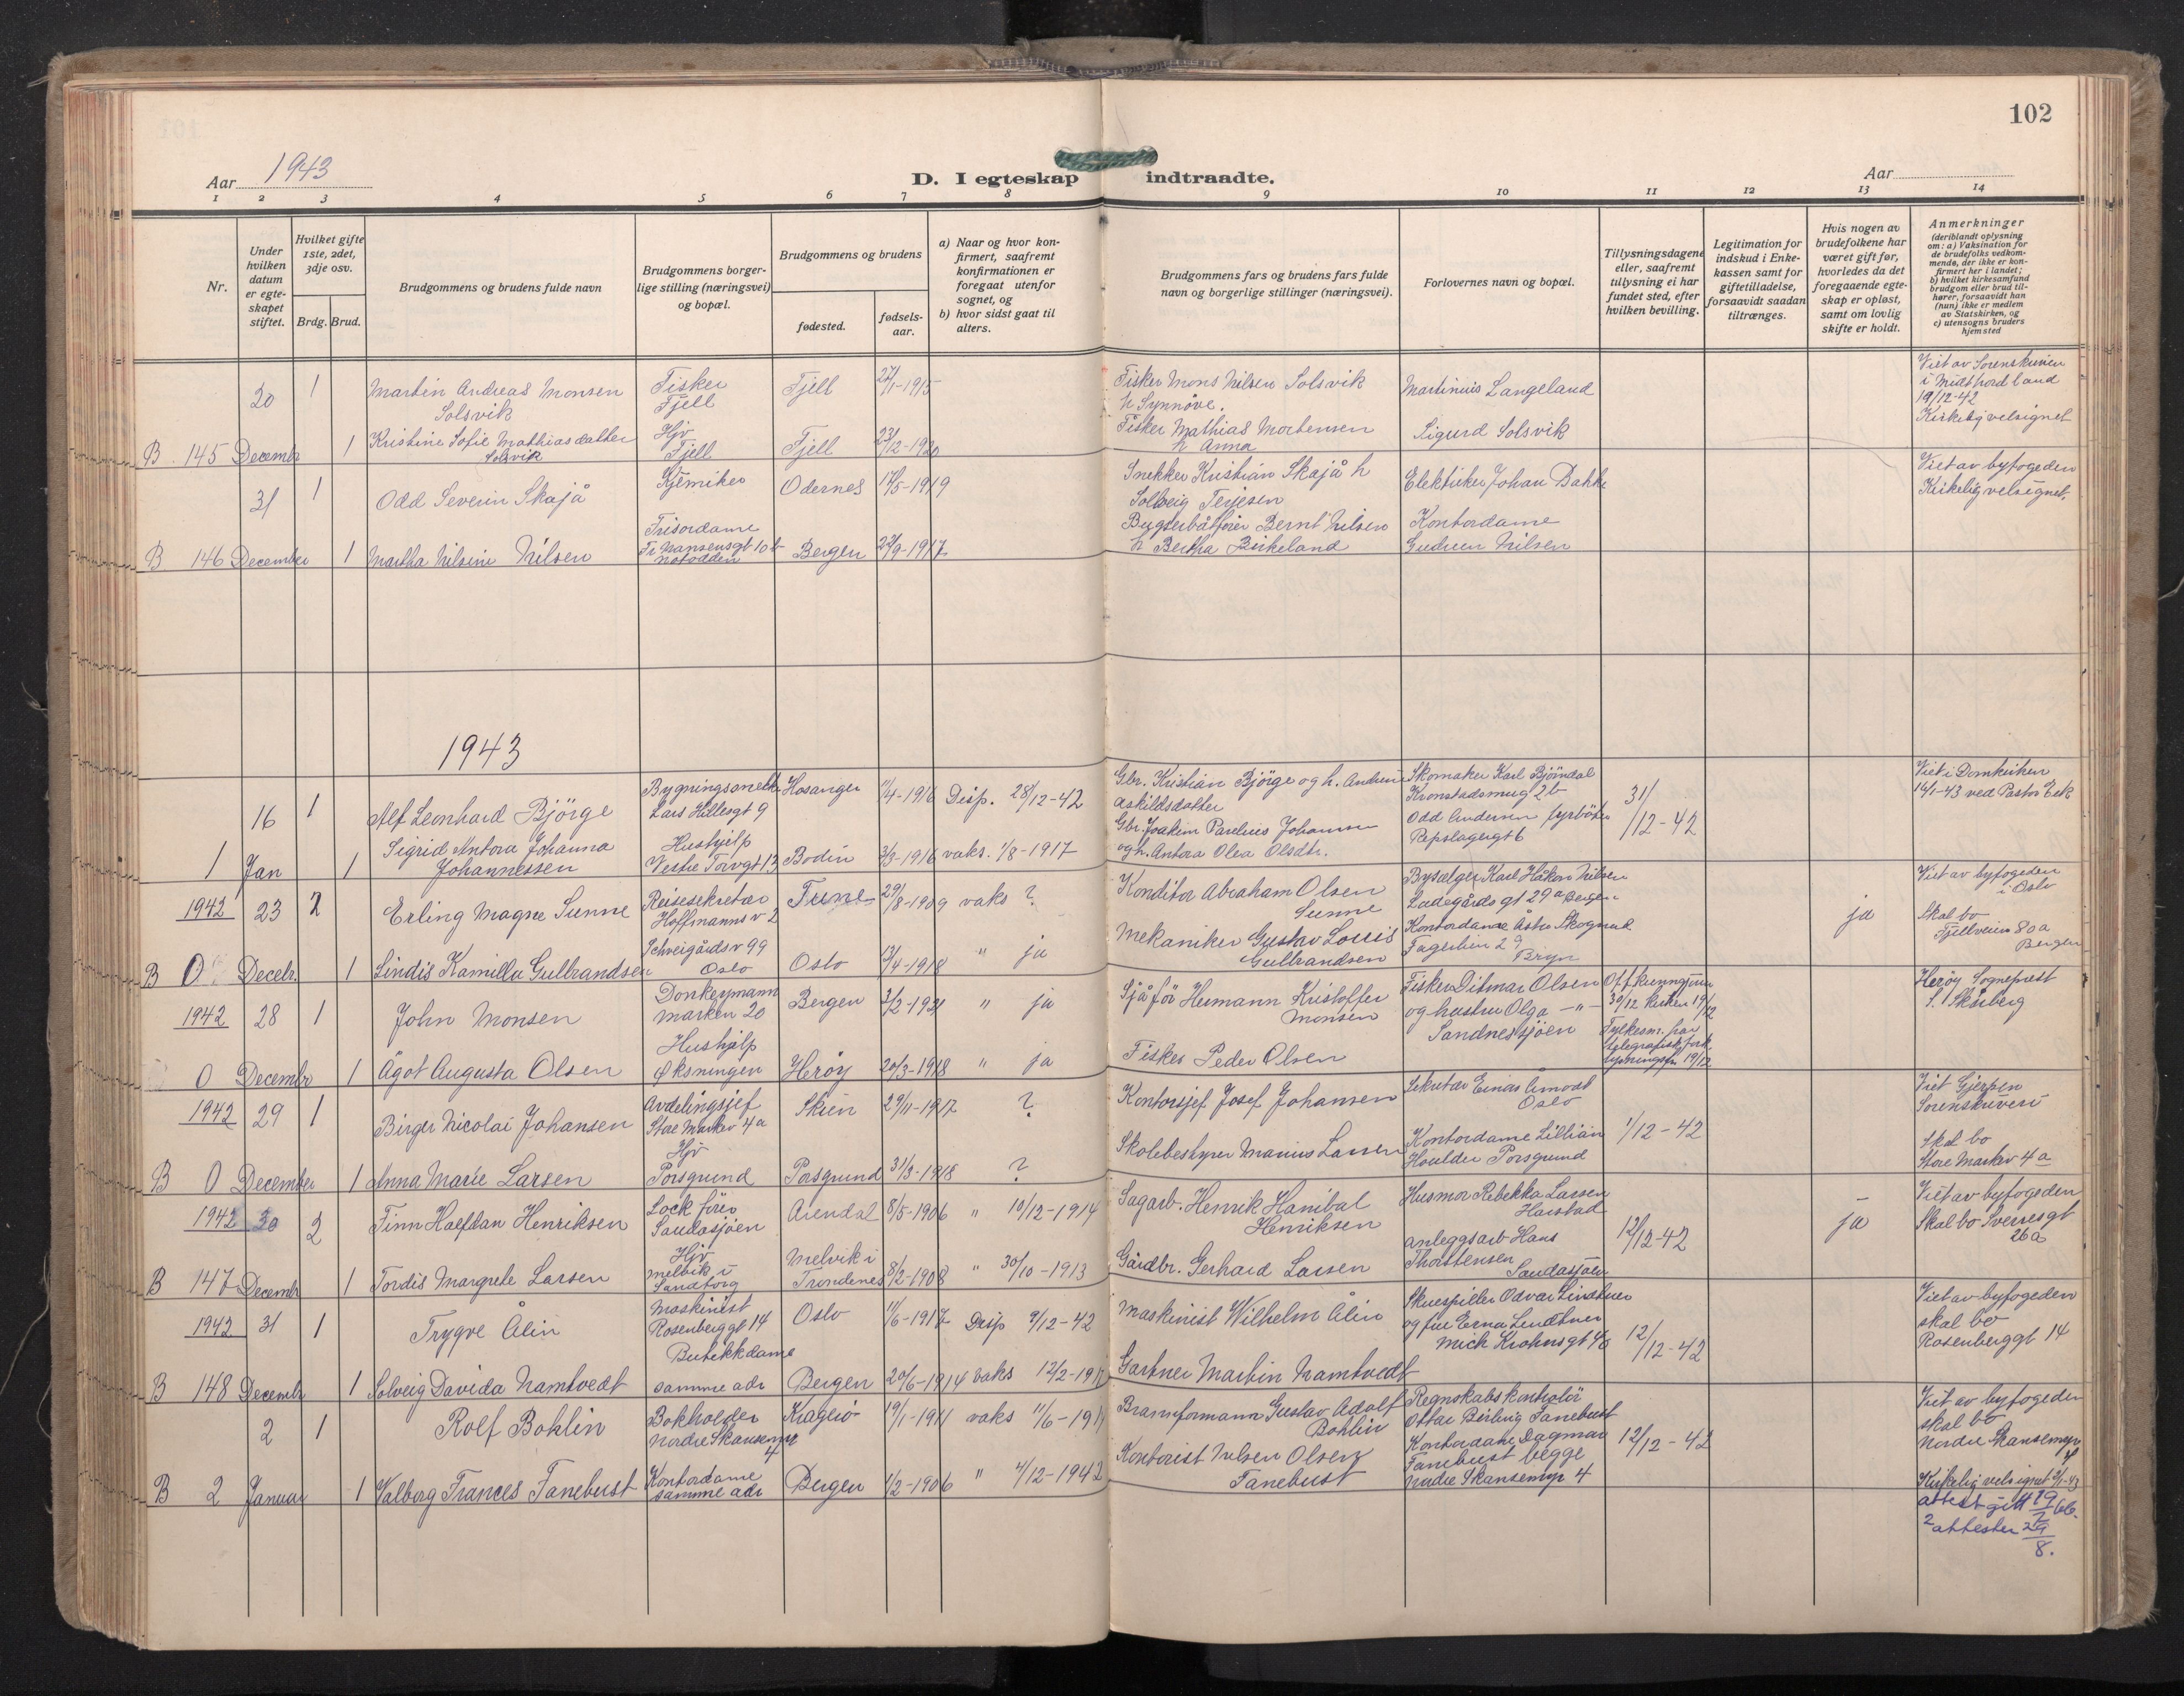 102
Aar 1943
D. I egteskap indtraadte.
Aar
1 2 3 4 5 6 7 8 9 10 11 12 13 14
Nr.
Under hvilken datum er egteskapet stiftet.
Hvilket gifte 1ste, 2det, 3dje osv.
Brdg. Brud.
Brudgommens og brudens fulde navn
Brudgommens borgerlige stilling (næringsvei) og bopæl.
Brudgommens og brudens
fødested.
fødselsaar.
a) Naar og hvor konfirmert, saafremt konfirmationen er foregaat utenfor sognet, og
b) hvor sidst gaat til alters.
Brudgommens fars og brudens fars fulde navn og borgerlige stillinger (næringsvei).
Forlovernes navn og bopæl.
Tillysningsdagene eller, saafremt tillysning ei har fundet sted, efter hvilken bevilling.
Legitimation for indskud i Enkekassen samt for giftetilladelse, forsaavidt saadan tiltrænges.
Hvis nogen av brudefolkene har været gift før, hvorledes da det foregaaende egteskap er opløst, samt om lovlig skifte er holdt.
Anmerkninger (deriblandt oplysning om: a) Vaksination for de brudefolks vedkommende, der ikke er konfirmert her i landet; b) hvilket kirkesamfund brudgom eller brud tilhører, forsaavidt han (hun) ikke er medlem av Statskirken, og c) utensogns bruders hjemsted
20 1 Martin Andreas Monsen Solsvik Fisker Fjell Fjell 22/1-1915 Fisker Mons Nilsen Solsvik h Synnöve. Martinius Langeland Viet av Sorenskriveren i Midthordland 19/12-42 Kirkelig velsignet
B 145 Decembr 1 Kristine Sofie Mathiasdatter Solsvik Hjv Fjell Fjell 23/12-1920 Fisker Mathias Mortensen h Anna Sigurd Solsvik
31 1 Odd Severin Skajå Kjemiker Odernes 17/5-1919 Snekker Kristian Skajå h Solveig Terjesen Elektriker Johan Dahke Viet av byfogeden Kirkelig velsignet.
B 146 December 1 Martha Nilsine Nilsen Frisordame Fr Nansensgt 10 b Notodden Bergen 22/9-1917 Bugserbåtförer Bernt Nilsen h Bertha Birkeland Kontordame Gudrun Nilsen
1943
16 1 Alf Leonhard Bjørge Bygningssnekk Lars Hillesgt 9 Hosanger 11/4-1916 Disp. 28/12-42 Gbr. Kristian Bjørge og h. Andrine Askildsdatter Skomaker Karl Bjöndal Kronstadsmug 2b 31/12-42 Viet i Domkirken 14/1-43 ved Pastor Eek
1 Jan 1 Sigrid Antora Johanna Johannessen Hushjelp Vestre Torvgt 13 Bodin 3/3-1916 vaks. 1/8-1917 Gbr. Joakim Parelius Johansen og h. Antora Olea Olsdtr. Odd Andersen fyrböter Repslagergt 6
1942 23 2 Erling Magne Sunne Reisesekretær Hoffmanns v 2 Tune 29/8-1909 vaks ? Konditor Abraham Olsen Sunne Bysælger Karl Håkon Nilsen Ladegårdsgt 29a Bergen ja Viet av byfogeden i Oslo
B 0 Decebr. 1 Lindis Kamilla Gulbrandsen Schweigårds v 99 Oslo Oslo 13/4-1918 " ja Mekaniker Gustav Louis Gulbrandsen Kontordame Åstr Skognal Fagerlien 29 Bryn Skal bo Fjellveien 80a Bergen
1942 28 1 John Monsen Donkeymann Marken 20 Bergen 3/2-1921 " ja Sjåför Hermann Kristoffer Monsen Fisker Ditmar Olsen og hustru Olga -"- Sandnessjöen Herøy Sogneprest S. Skårberg
0 Decembr 1 Ågot Augusta Olsen Hushjelp Øksningen Herøy 20/3-1918 " ja Fisker Peder Olsen
1942 29 1 Birger Nicolai Johansen Avdelingsjef Store Markev 4a Skien 29/11-1917 ? Kontorsjef Josef Johansen Sekretær Einar Åmodt Oslo 1/12-42 Viet Gjerpen Sorenskriveri
B 0 December 1 Anna Marie Larsen Hjv Porsgrund Porsgrund 31/3-1918 ? Skolebestyrer Marius Larsen Kontordame Lillian Houlder Porsgrund Skal bo Store Markev 4a
1942 30 2 Finn Halfdan Henriksen Lock förer Saudasjöen Arendal 8/5-1906 " 10/12-1914 Sagarb. Henrik Hanibal Henriksen Husmor Rebekka Larsen Harstad 12/12-42 - ja Viet av byfogeden Skal bo Sverresgt 26a
B 147 Decembr 1 Tordis Margrete Larsen Hjv Melvik i Sandtorg Melvik i Trondenes 8/2-1908 " 30/10-1913 Gårdbr. Gerhard Larsen Anleggsarb Hans Thorstensen Saudasjöen
1942 31 1 Trygve Ålin Maskinist Rosenberggt 14 Oslo 11/6-1917 Disp 9/12-42 Maskinist Wilhelm Ålin Skuespiller Odvar Lindtner og fru Erna Lindtner Mick Krohnsgt 40 12/12-42 Viet av byfogeden skal bo Rosenberggt 14
B 148 Decembr 1 Solveig Davida Namtvedt Butikkdame samme adr Bergen 20/6-1914 vaks 12/2-191 Gartner Martin Namtvedt
2 1 Rolf Bohlin Bokholder Nordre Skansemyr 4 Kragerö 19/1-1911 vaks 11/6-1911 Brannformann Gustav Adolf Bohlin Regnskabskontrolör Ottar Berling Fanebust 12/12-42 Viet av byfogeden skal bo Nordre Skansemyr 4
B 2 Januar 1 Valborg Frances Fanebust Kontordame samme adr Bergen 1/2-1906 " 4/12-1942 Kontorist Nilsen Olsen Fanebust Kontordame Dagmar Fanebust begge Nordre Skansemyr 4 Kirkelig velsignet 2/1-43
attest gitt 19/7 66.
2 attester 29/8.